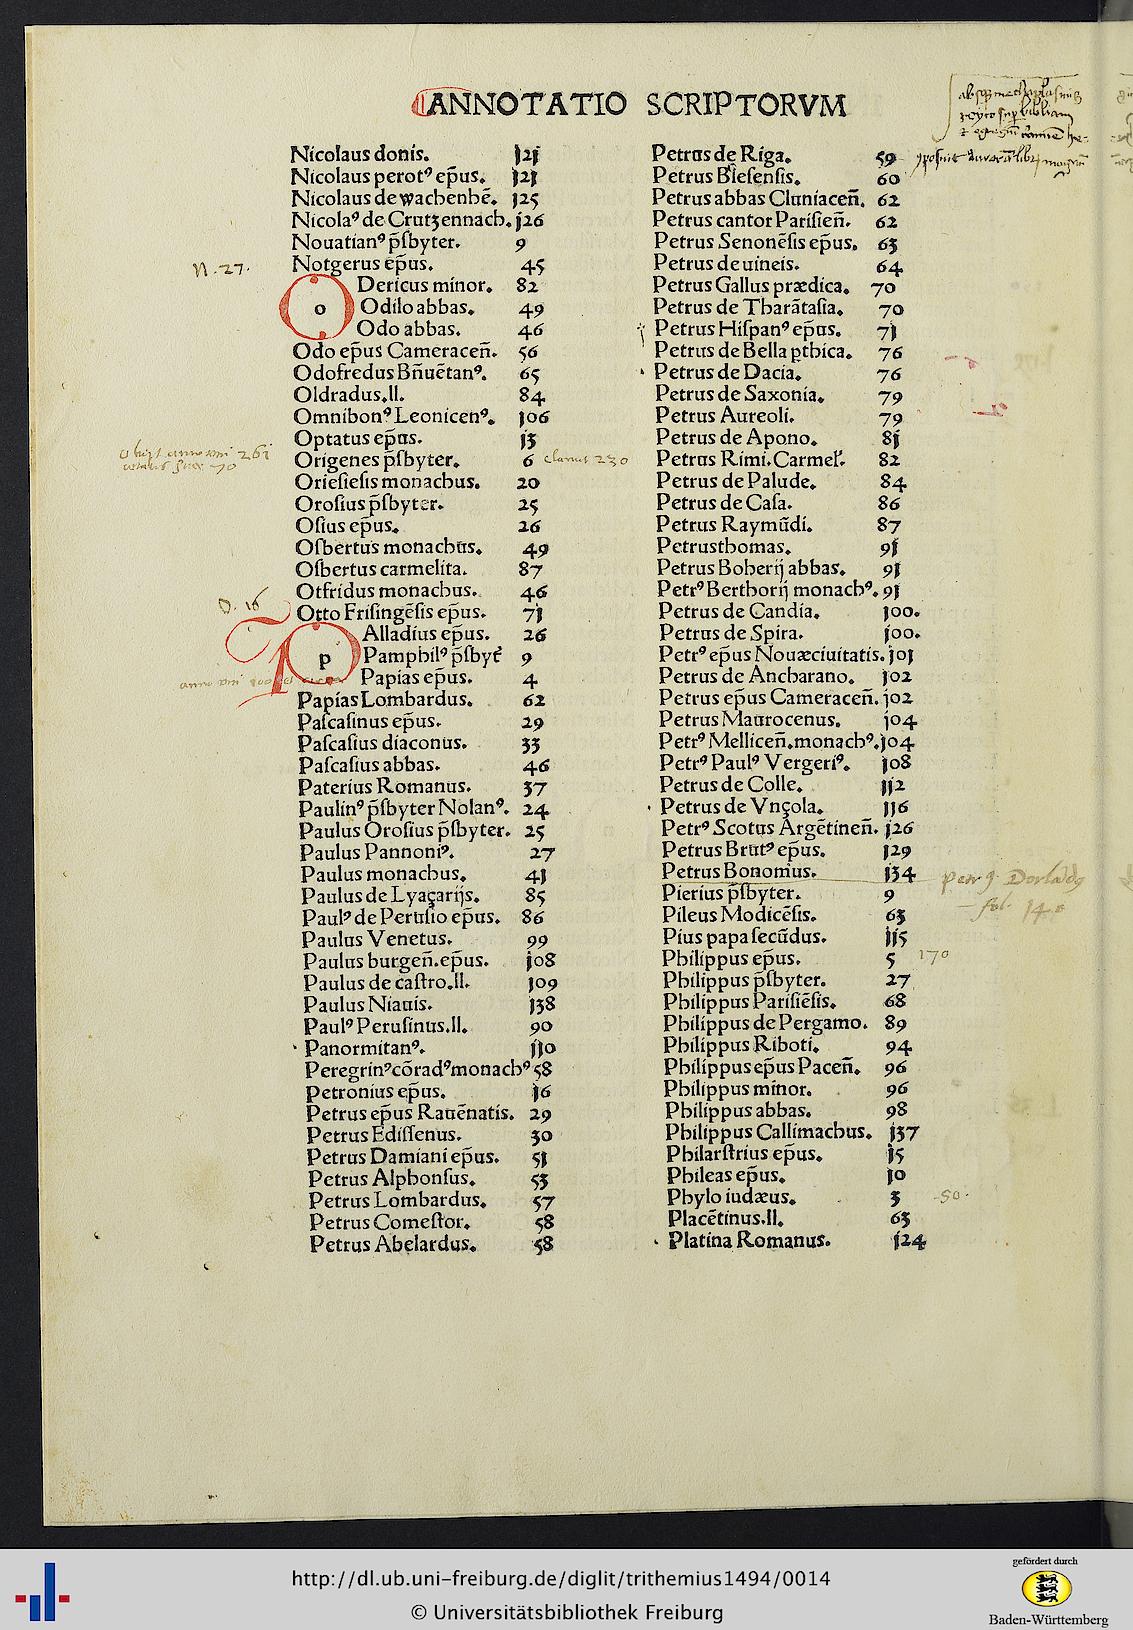 ANNOTATIO SCRIPTORVM
Nicolaus donis. j2j
Nicolaus perotꝰ ep̄us. j2j
Nicolaus de wachenhē. j25
Nicolaꝰ de Crutzennach. j26
Nouatianꝰ p̄ſbyter. 9
Notgerus ep̄us. 45
N. 27.
o Dericus minor. 82
Odilo abbas. 49
Odo abbas. 46
Odo ep̄us Cameraceñ. 56
Odofredus Bñuētanꝰ. 65
Oldradus.ll. 84
Omnibonꝰ Leonicenꝰ. j06
Optatus ep̄us. j3
Origenes p̄ſbyter. 6
Orieſieſis monachus. 20
Oroſius p̄ſbyter. 25
Oſius ep̄us. 26
Oſbertus monachus. 49
Oſbertus carmelita. 87
Otfridus monachus. 46
Otto Friſingēſis ep̄us. 7j
O. 16
p Alladius ep̄us. 26
Pamphilꝰ p̄ſbyt̄ 9
Papias ep̄us. 4
Papias Lombardus. 62
Paſcaſinus ep̄us. 29
Paſcaſius diaconus. 33
Paſcaſius abbas. 46
Paterius Romanus. 37
Paulinꝰ p̄ſbyter Nolanꝰ. 24
Paulus Oroſius p̄ſbyter. 25
Paulus Pannoniꝰ. 27
Paulus monachus. 4j
Paulus de Lyaçarijs. 85
Paulꝰ de Peruſio ep̄us. 86
Paulus Venetus. 99
Paulus burgeñ.ep̄us. j08
Paulus de caſtro.ll. j09
Paulus Niauis. j38
Paulꝰ Peruſinus.ll. 90
Panormitanꝰ. jj0
Peregrinꝰ cōradꝰ monachꝰ 58
Petronius ep̄us. j6
Petrus ep̄us Rauēnatis. 29
Petrus Ediſſenus. 30
Petrus Damiani ep̄us. 5j
Petrus Alphonſus. 53
Petrus Lombardus. 57
Petrus Comeſtor. 58
Petrus Abelardus. 58
Petrus de Riga. 59
Petrus Bleſenſis. 60
Petrus abbas Cluniaceñ. 62
Petrus cantor Pariſieñ. 62
Petrus Senonēſis ep̄us. 63
Petrus de uineis. 64
Petrus Gallus prædica. 70
Petrus de Tharātaſia. 70
Petrus Hiſpanꝰ ep̄us. 7j
Petrus de Bella ꝑthica. 76
Petrus de Dacia. 76
Petrus de Saxonia. 79
Petrus Aureoli. 79
Petrus de Apono. 8j
Petrus Rimi. Carmeł. 82
Petrus de Palude. 84
Petrus de Caſa. 86
Petrus Raymūdi. 87
Petrusthomas. 9j
Petrus Boherij abbas. 9j
Petrꝰ Berthorij monachꝰ. 9j
Petrus de Candia. j00.
Petrus de Spira. j00.
Petrꝰ ep̄us Nouæciuitatis. j0j
Petrus de Ancharano. j02
Petrus ep̄us Cameraceñ. j02
Petrus Maurocenus. j04
Petrꝰ Melliceñ.monachꝰ. j04
Petrꝰ Paulꝰ Vergeriꝰ. j08
Petrus de Colle. jj2
Petrus de Vnçola. jj6
Petrꝰ Scotus Argētineñ. j26
Petrus Brutꝰ ep̄us. j29
Petrus Bonomus. j34
Petrꝰ Dorlādꝰ
fol. 14
Pierius p̄ſbyter. 9
Pileus Modicēſis. 63
Pius papa ſecūdus. jj5
Philippus ep̄us. 5 170
Philippus p̄ſbyter. 27
Philippus Pariſiēſis. 68
Philippus de Pergamo. 89
Philippus Riboti. 94
Philippus ep̄us Paceñ. 96
Philippus minor. 96
Philippus abbas. 98
Philippus Callimachus. j37
Philarſtrius ep̄us. j5
Phileas ep̄us. j0
Phylo iudæus. 3 50.
Placētinus.ll. 63
Platina Romanus. j24
http://dl.ub.uni-freiburg.de/diglit/trithemius1494/0014
© Universitätsbibliothek Freiburg
gefördert durch
Baden-Württemberg